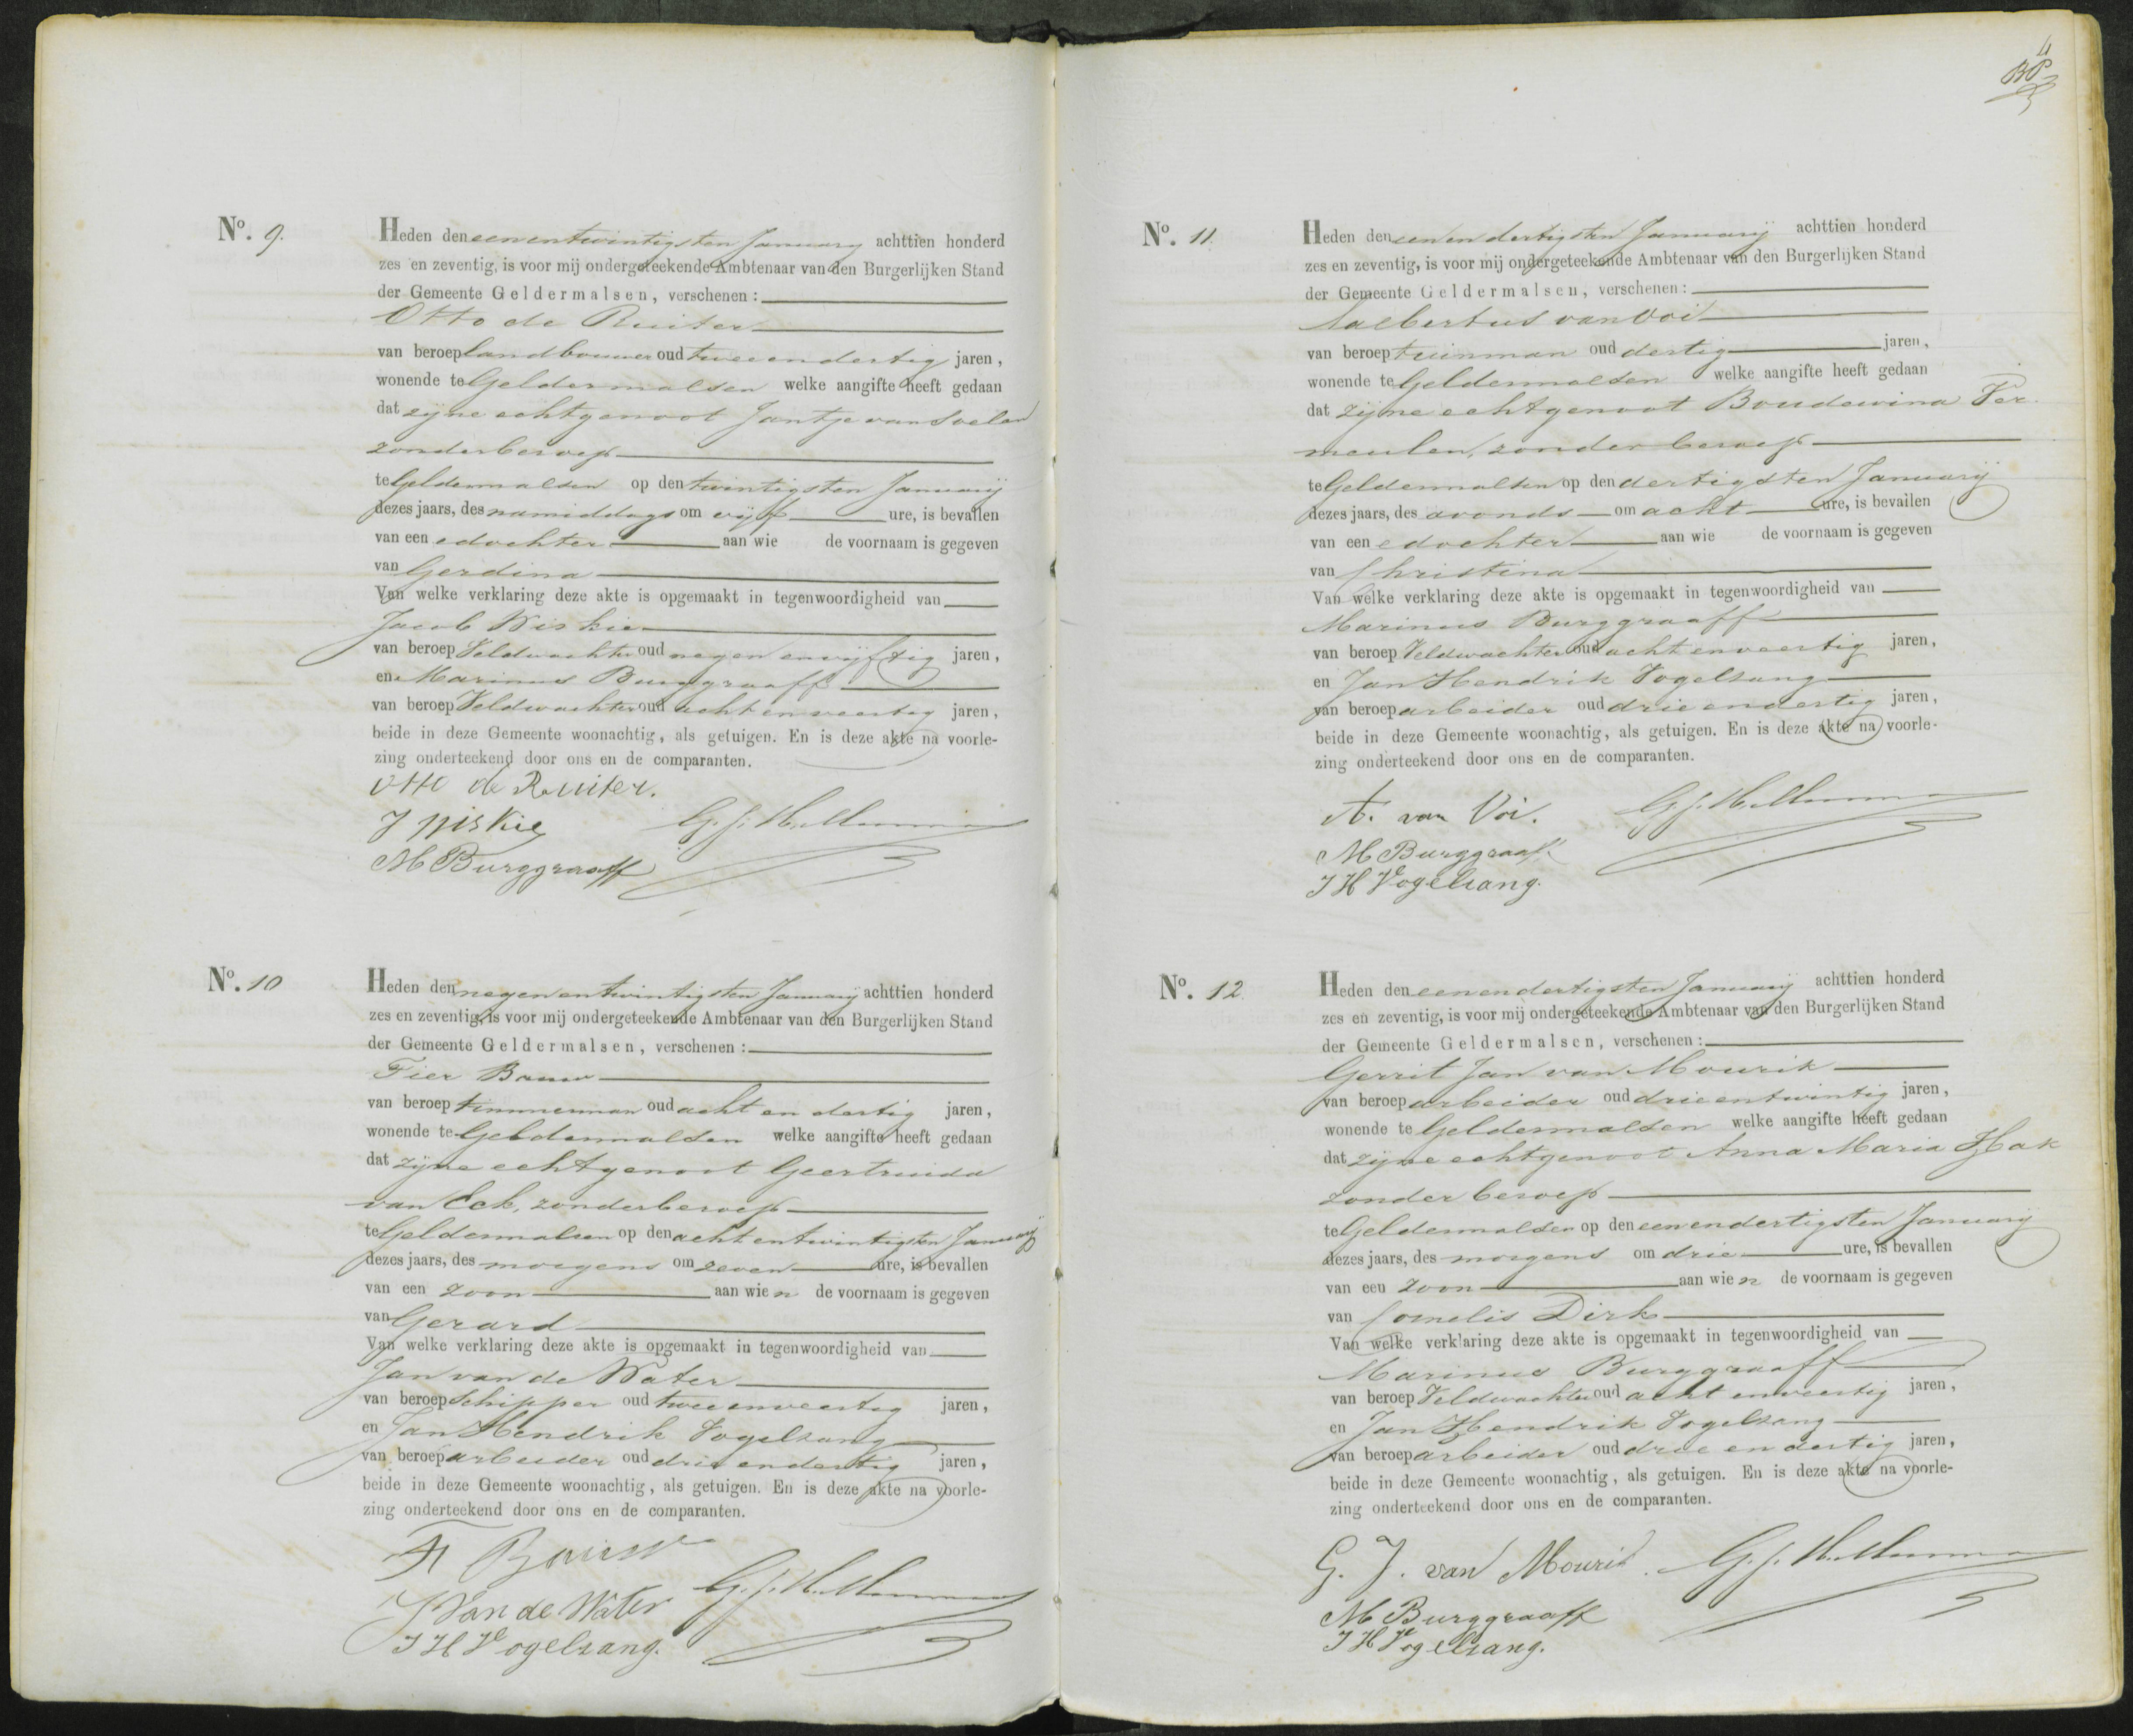 No. 9.
Heden den eenentwintigsten January achttien honderd
zes en zeventig, is voor mij ondergeteekende Ambtenaar van den Burgerlijken Stand
der Gemeente Geldermalsen, verschenen:
Otto de Ruiter
van beroep landbouwer oud twee en dertig jaren,
wonende te Geldermalsen welke aangifte heeft gedaan
dat zijne echtgenoot Jantje van Soelen
zonder beroep
te Geldermalsen op den twintigsten Januarij
dezes jaars, des namiddags om vijf ure, is bevallen
van een e dochter aan wie de voornaam is gegeven
van Gerdina
Van welke verklaring deze akte is opgemaakt in tegenwoordigheid van
Jacob Niskie
van beroep Veldwachter oud negen en vijftig jaren,
en Marinus Burggraaff
van beroep Veldwachter oud acht en veertig jaren,
beide in deze Gemeente woonachtig, als getuigen. En is deze akte na voorle-
zing onderteekend door ons en de comparanten.
Otto de Ruiter.
J Niskie
M Burggraaff
No. 10
Heden den negen en twintigsten Januarij achttien honderd
zes en zeventig, is voor mij ondergeteekende Ambtenaar van den Burgerlijken Stand
der Gemeente Geldermalsen, verschenen:
Fier Bouw
van beroep timmerman oud acht en dertig jaren,
wonende te Geldermalsen welke aangifte heeft gedaan
dat zijne echtgenoot Geertruida
van Eck, zonder beroep
te Geldermalsen op den acht en twintigsten Januarij
dezes jaars, des morgens om zeven ure, is bevallen
van een zoon aan wien de voornaam is gegeven
van Gerard
Van welke verklaring deze akte is opgemaakt in tegenwoordigheid van
Jan van de Water
van beroep Schipper oud twee en veertig jaren,
en Jan Hendrik Vogelzang
van beroep arbeider oud drie en dertig jaren,
beide in deze Gemeente woonachtig, als getuigen. En is deze akte na voorle-
zing onderteekend door ons en de comparanten.
F Bouw
J Van de Water
J H Vogelzang.
4
No. 11.
Heden den een en dertigsten Januarij achttien honderd
zes en zeventig, is voor mij ondergeteekende Ambtenaar van den Burgerlijken Stand
der Gemeente Geldermalsen, verschenen:
Aalbertus van Voi
van beroep tuinman oud dertig jaren,
wonende te Geldermalsen welke aangifte heeft gedaan
dat zijne echtgenoot Boudewina Ver-
meulen, zonder beroep
te Geldermalsen op den dertigsten Januarij
dezes jaars, des avonds om acht ure, is bevallen
van een e dochter aan wie de voornaam is gegeven
van Christina
Van welke verklaring deze akte is opgemaakt in tegenwoordigheid van
Marinus Burggraaff
van beroep Veldwachter oud acht en veertig jaren,
en Jan Hendrik Vogelzang
van beroep arbeider oud drie en dertig jaren,
beide in deze Gemeente woonachtig, als getuigen. En is deze akte na voorle-
zing onderteekend door ons en de comparanten.
A. van Voi.
M Burggraaff
J H Vogelzang.
No. 12.
Heden den een en dertigsten Januarij achttien honderd
zes en zeventig, is voor mij ondergeteekende Ambtenaar van den Burgerlijken Stand
der Gemeente Geldermalsen, verschenen:
Gerrit Jan van Mourik
van beroep arbeider oud drie en twintig jaren,
wonende te Geldermalsen welke aangifte heeft gedaan
dat zijne echtgenoot Anna Maria Hak
zonder beroep
te Geldermalsen op den een en dertigsten Januarij
dezes jaars, des morgens om drie ure, is bevallen
van een zoon aan wien de voornaam is gegeven
van Cornelis Dirk
Van welke verklaring deze akte is opgemaakt in tegenwoordigheid van
Marinus Burggraaff
van beroep Veldwachter oud acht en veertig jaren,
en Jan Hendrik Vogelzang
van beroep arbeider oud drie en dertig jaren,
beide in deze Gemeente woonachtig, als getuigen. En is deze akte na voorle-
zing onderteekend door ons en de comparanten.
G. J. van Mourik.
M Burggraaff
J H Vogelzang.